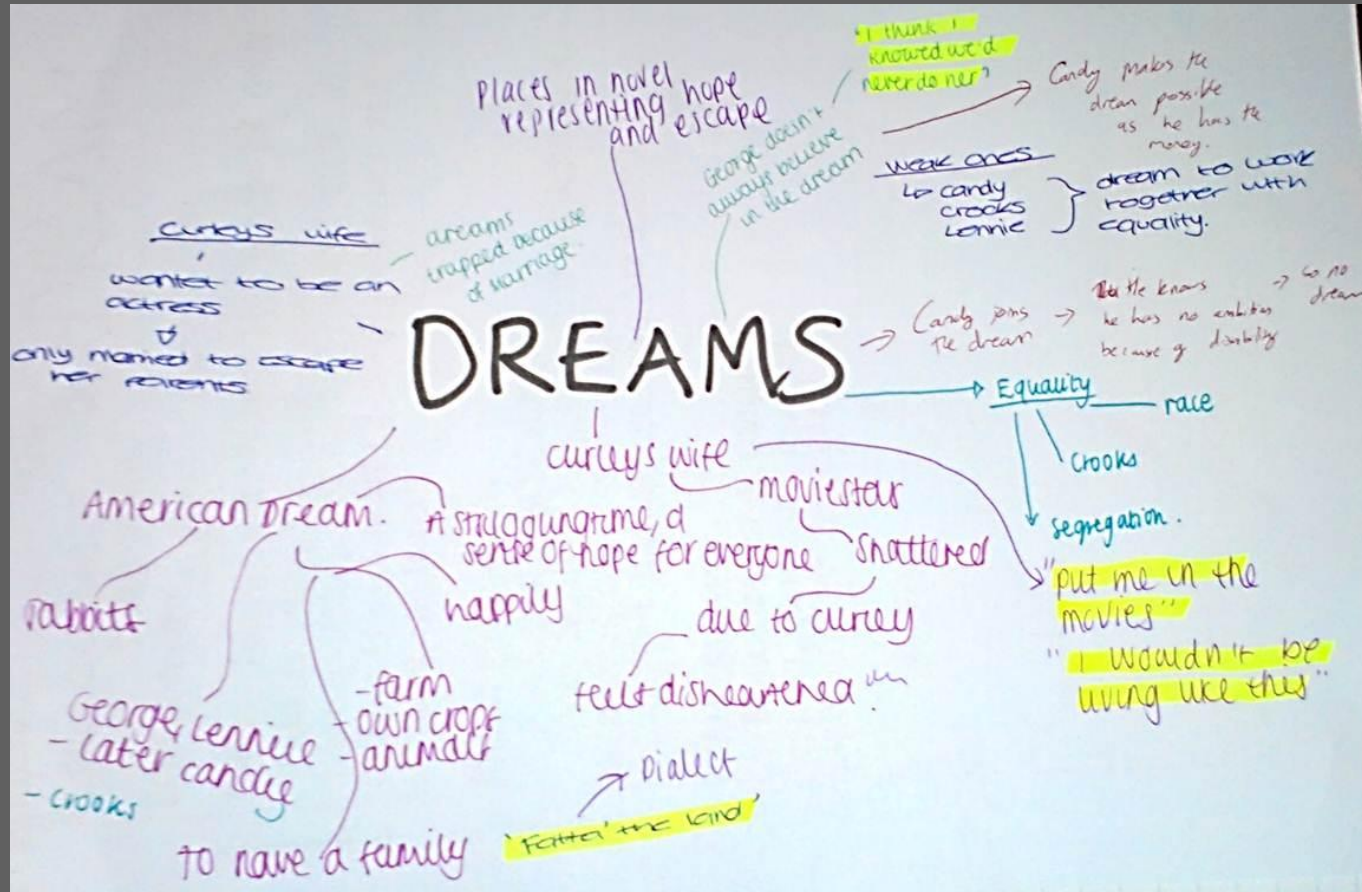 "I think I
knowed we'd
never do ner"
Places in novel
representing hope
and escape
George doesn't
always believe
in the dream
Candy makes the
dream possible
as he has the
money.
weak ones
↳ candy
crooks
Lennie
dream to work
together with
equality.
Curleys wife
wanted to be an
actress
only married to escape
her parents
dreams
trapped because
of marriage.
DREAMS
Candy joins
the dream
He knows
he has no ambition
because of disability
so no
dream
Equality
race
Crooks
segregation.
curleys wife
moviestar
shattered
due to curley
feels disheartened
"put me in the
movies"
"I wouldn't be
living like this"
American Dream.
A struggling time, a
sense of hope for everyone
happily
rabbits
George, Lennie
- later candy
- crooks
- farm
- own crops
- animals
to have a family
Dialect
'Fatta' the land'